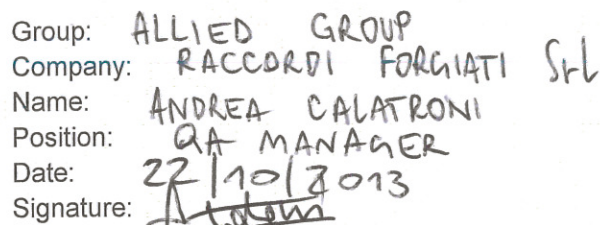 Group: ALLIED GROUP
Company: RACCORDI FORGIATI Srl
Name: ANDREA CALATRONI
Position: QA MANAGER
Date: 22/10/2013
Signature: